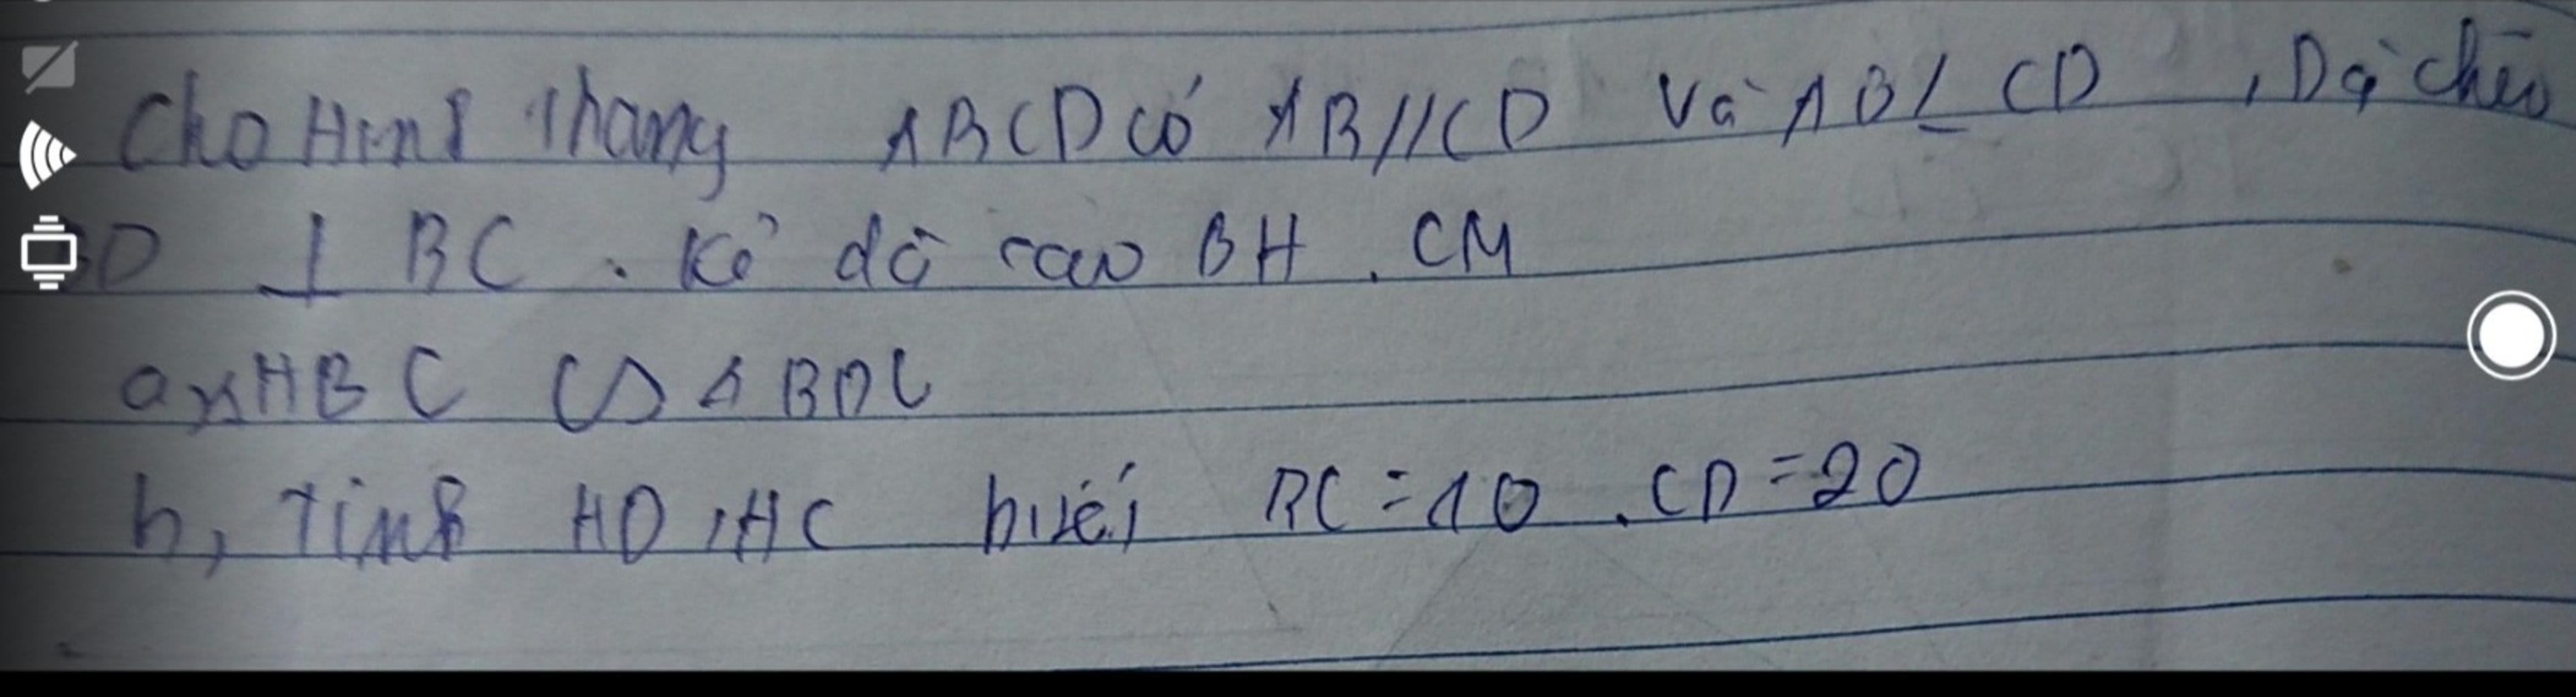 Cho Hinh thang ABCD có AB//CD Và AB< CD , Dg chéo
BD ⊥ BC . Kẻ đg cao BH . CM
a, ΔHBC ∽ Δ BDC
b, Tính HD , HC biết BC = 10 . CD = 20